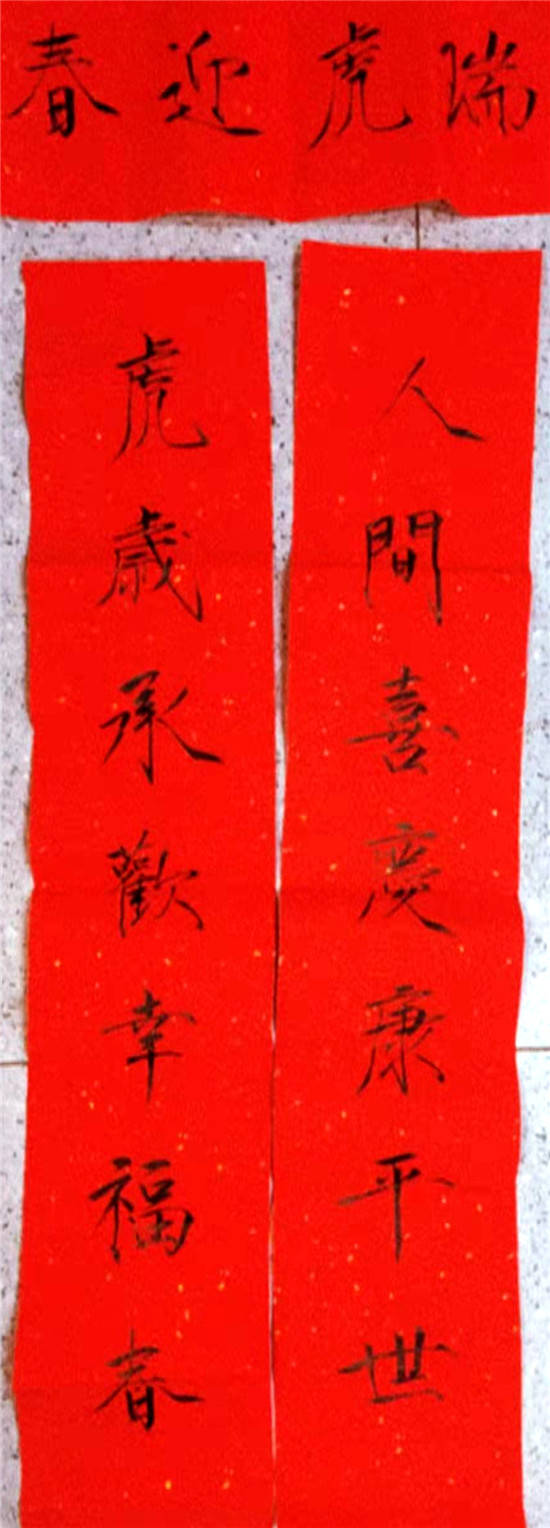 瑞虎迎春
人間喜慶康平世
虎歲承歡幸福春